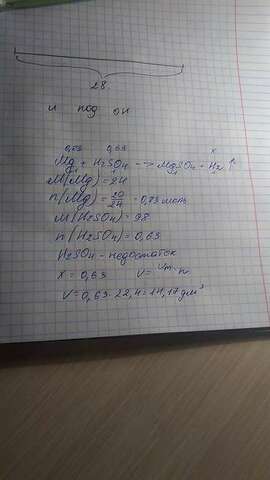 28.
и под он
0,83 0,63 x
Mg + H2SO4 --> MgSO4 + H2 ↑
1 1 1 1
M(Mg) = 24
n(Mg) = 20/24 = 0,83 моль
M(H2SO4) = 98
n(H2SO4) = 0,63
H2SO4 - недостаток
x = 0,63 V = Vm · n
V = 0,63 · 22,4 = 14,11 дм³